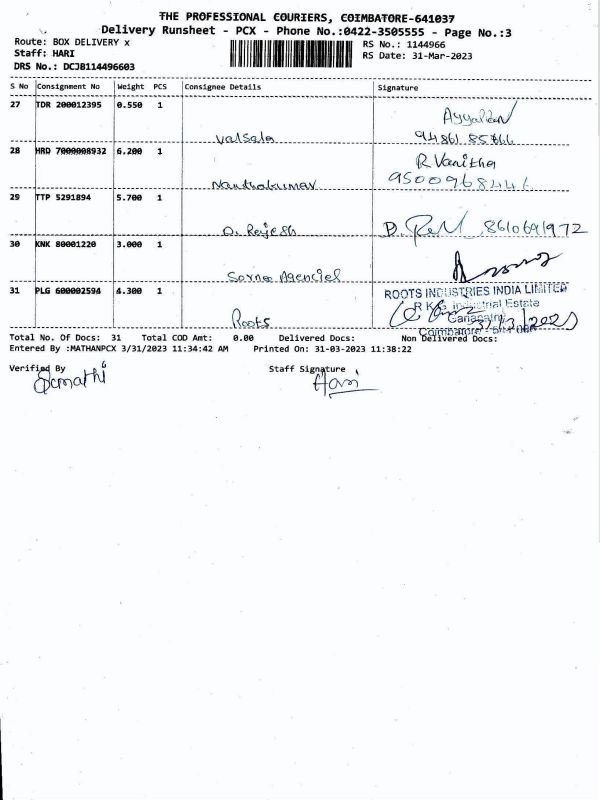 THE PROFESSIONAL COURIERS, COIMBATORE-641037
Delivery Runsheet - PCX - Phone No.:0422-3505555 - Page No.:3
Route: BOX DELIVERY x
Staff: HARI
DRS No.: DCJB114496603
RS No.: 1144966
RS Date: 31-Mar-2023
S No Consignment No Weight PCS Consignee Details Signature
27 TDR 200012395 0.550 1
Valsala
28 HRD 7000008932 6.200 1
R Vanitha
Nanthakumar
29 TTP 5291894 5.700 1
D. Rajesh 8610691972
30 KNK 80001220 3.000 1
31 PLG 600002594 4.300 1
ROOTS INDUSTRIES INDIA LIMITED
Industrial Estate
Roots
Coimbatore
31/3/2023
Total No. Of Docs: 31 Total COD Amt: 0.00 Delivered Docs: Non Delivered Docs:
Entered By :MATHANPCX 3/31/2023 11:34:42 AM Printed On: 31-03-2023 11:38:22
Verified By Staff Signature
Hari